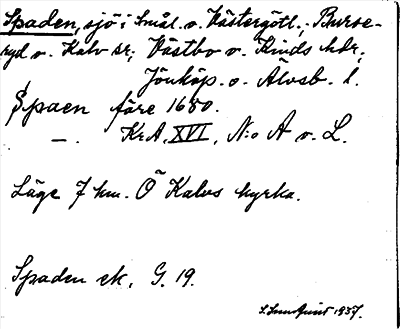 Spaden, sjö i Smål. o. Västergötl.; Burse-
ryd o. Kalv sr; Västbo o. Kinds hdr;
Jönköp. o. Älvsb. l.
Spaen före 1680.
— . KrA, XVI, N:o A o. L.
Läge 7 km. Ö Kalvs kyrka.
Spaden ek, G. 19.
S. Lundquist 1937.